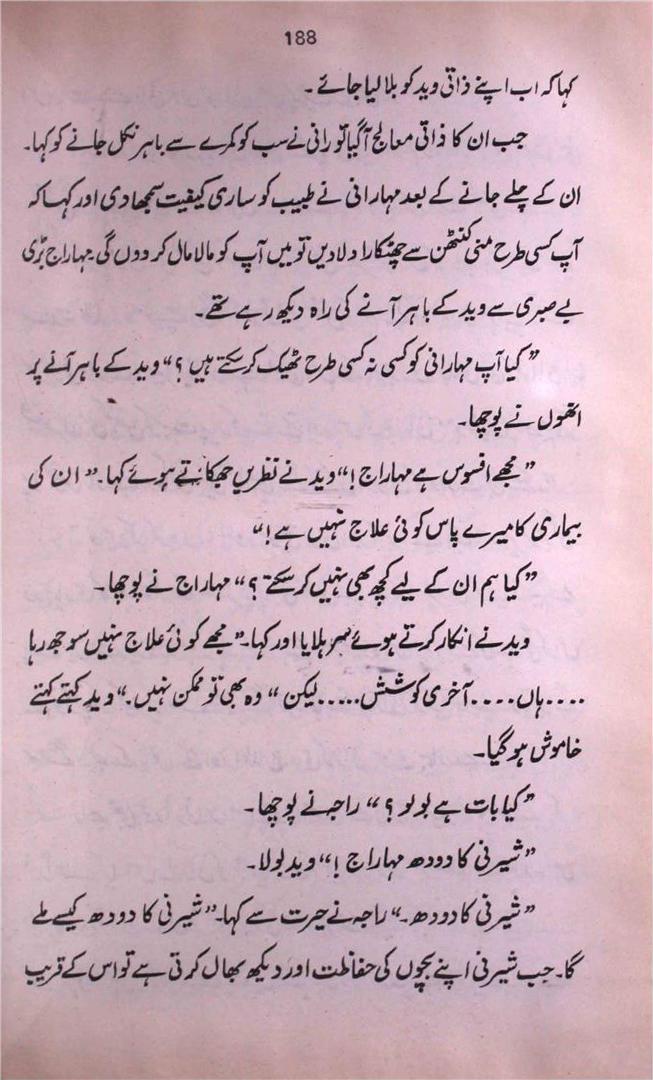 188
کہا کہ اب اپنے ذاتی وید کو بلا لیا جائے ۔
جب ان کا ذاتی معالج آگیا تو رانی نے سب کو کمرے سے باہر نکل جانے کو کہا۔
ان کے چلے جانے کے بعد مہارانی نے طبیب کو ساری کیفیت سمجھا دی اور کہا کہ
آپ کسی طرح منی کنٹھن سے چھٹکارا دلا دیں تو میں آپ کو مالا مال کر دوں گی۔ مہاراج بڑی
بے صبری سے وید کے باہر آنے کی راہ دیکھ رہے تھے۔
”کیا آپ مہارانی کو کسی نہ کسی طرح ٹھیک کر سکتے ہیں ؟“ وید کے باہر آنے پر
انھوں نے پوچھا۔
”مجھے افسوس ہے مہاراج !“ وید نے نظریں جھکاتے ہوئے کہا۔ ”ان کی
بیماری کا میرے پاس کوئی علاج نہیں ہے !“
”کیا ہم ان کے لیے کچھ بھی نہیں کر سکتے ؟“ مہاراج نے پوچھا۔
وید نے انکار کرتے ہوئے سر ہلایا اور کہا۔ ”مجھے کوئی علاج نہیں سوجھ رہا
.... ہاں .... آخری کوشش ..... لیکن “ وہ بھی تو ممکن نہیں۔“ وید کہتے کہتے
خاموش ہو گیا۔
”کیا بات ہے بولو ؟“ راجہ نے پوچھا۔
”شیرنی کا دودھ مہاراج !“ وید بولا۔
”شیرنی کا دودھ۔“ راجہ نے حیرت سے کہا۔ ”شیرنی کا دودھ کیسے ملے
گا۔ جب شیرنی اپنے بچوں کی حفاظت اور دیکھ بھال کرتی ہے تو اس کے قریب